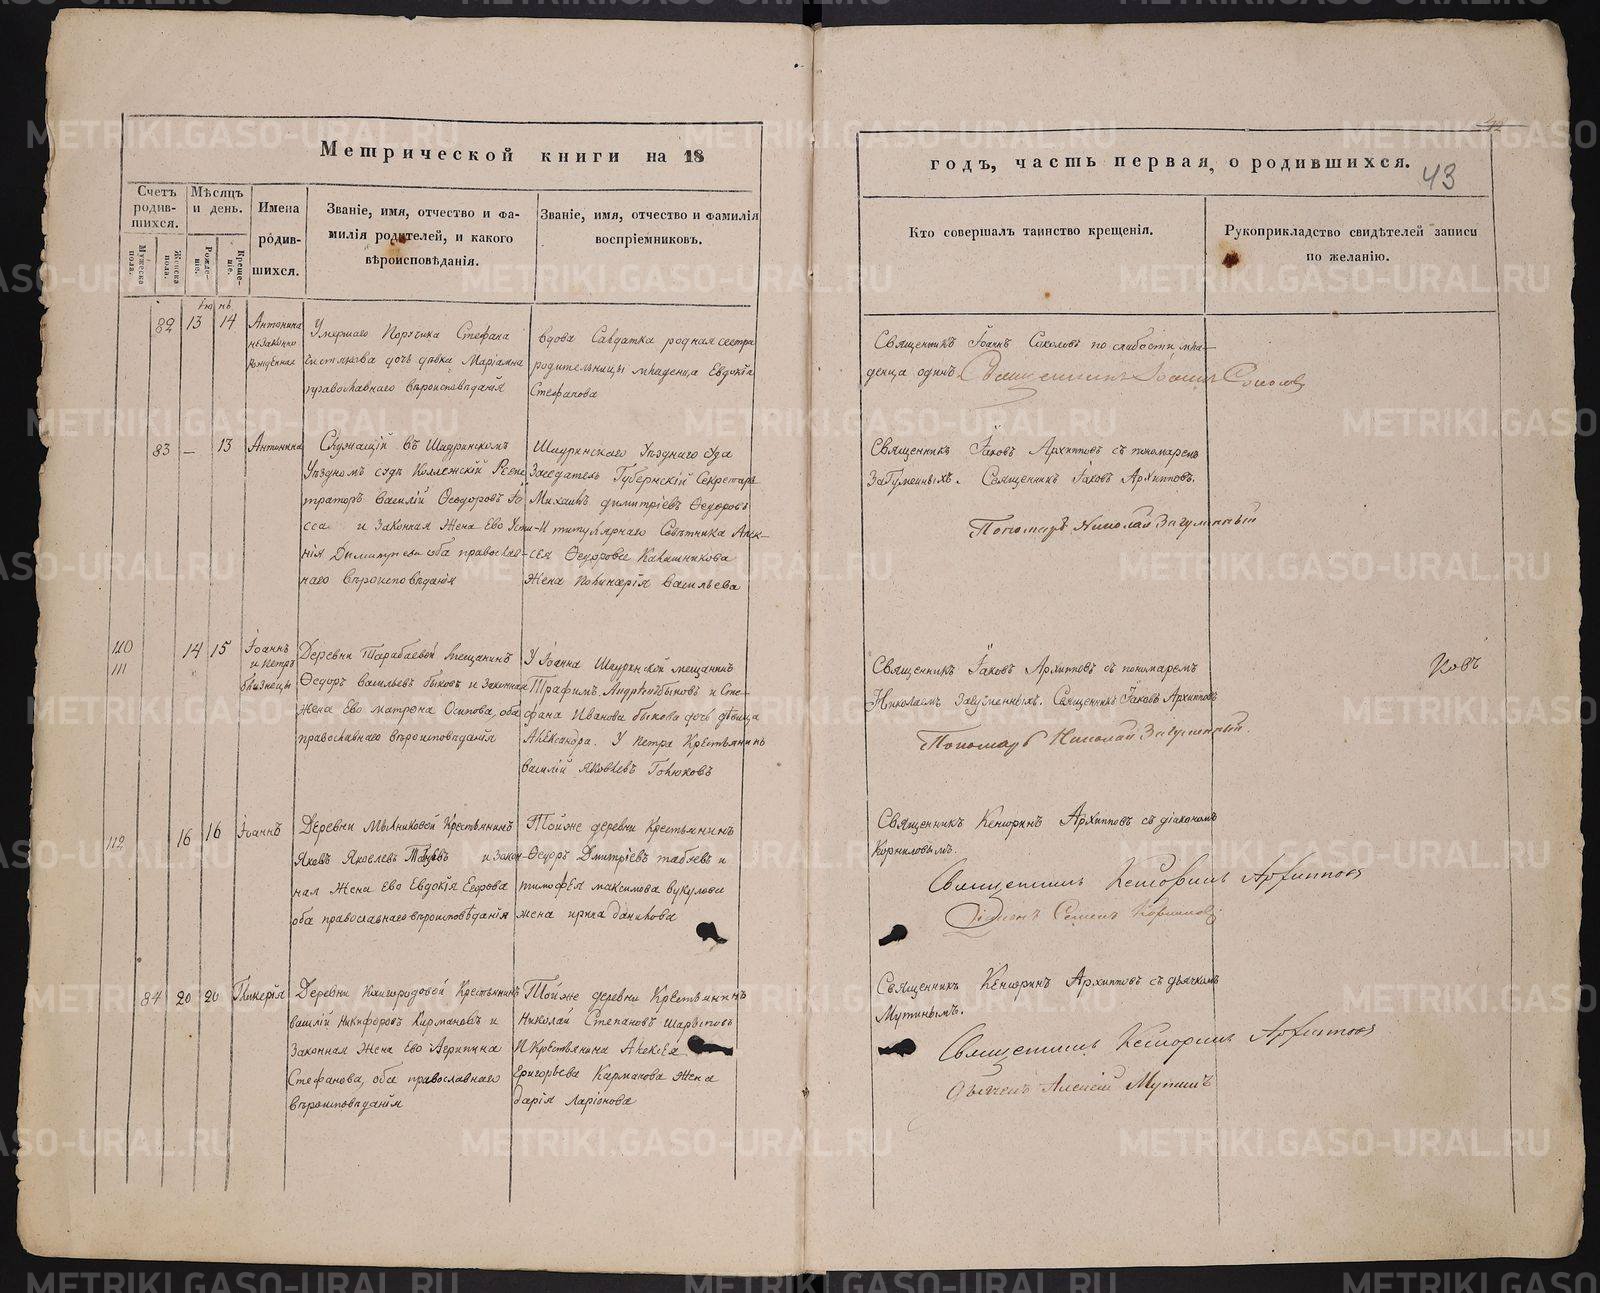 Метрической книги на 18
Счетъ родив-шихся.
Мѣсяцъ и день.
Имена родив-шихся.
Званіе, имя, отчество и фа-
милія родителей, и какого
вѣроисповѣданія.
Званіе, имя, отчество и фамилія
воспріемниковъ.
Мужеска пола.
Женска пола.
Рожде-ніе.
Креще-ніе.
Іюнь.
82 13 14 Антонина незаконно рожденная
Умершаго Поручика Стефана
дочь дѣвка Маріамна
православнаго вѣроисповѣданія
вдова Салдатка родная сестра
родительницы младенца Евдокія
Стефанова
83 — 13 Антонина
Служащій въ Шадринскомъ
Уѣздномъ судѣ Коллежскій Реги
траторъ Василій Ѳеодоровъ
и Законная Жена Ево Усти-
нія Димитриева оба православ-
наго вѣроисповѣданія
Шадринскаго Уѣзднаго суда
Засѣдатель Губернскій Секретарь
Михаилъ Димитріевъ Ѳедоровъ
И титулярнаго Совѣтника Алек-
сѣя Ѳедорова Калашникова
Жена Полинарія Васильева
110
111
14 15 Іоаннъ и Петръ близнецы
Деревни Тарабаевой Мещанинъ
Ѳедоръ Васильевъ быковъ и Законная
Жена Ево матрона Осипова, оба
православнаго вѣроисповѣданія
У Іоанна Шадринской мещанинъ
Трафимъ Андрѣевъ быковъ и Сте-
фана Иванова быкова дочь дѣвица
Александра. У Петра Крестьянинъ
Василій Яковлевъ Голюковъ
112 16 16 Іоаннъ
Деревни Мыльниковой Крестьянинъ
Яковъ Яковлевъ и закон-
ная Жена Ево Евдокія Егорова
оба православнаго вѣроисповѣданія
Тойже деревни Крестьянинъ
Ѳедоръ Дмитріевъ табуевъ и
тимофея максимова вукулова
жена ирина данилова
84 20 20 Гликерія
Деревни Крестьянинъ
василій Никифоровъ Кармановъ и
Законная Жена Ево Агрипина
Стефанова, оба православнаго
вѣроисповѣданія
Тойже деревни Крестьянинъ
Николай Степановъ Шарыповъ
И Крестьянина Алексѣя
Григорьева Карманова Жена
дарія Ларіонова
годъ, часть первая, о родившихся.
43
Кто совершалъ таинство крещенія.
Рукоприкладство свидѣтелей записи
по желанію.
Священникъ Іоаннъ Соколовъ по слабости мла-
денца одинъ. Священникъ Іоаннъ Соколовъ
Священникъ Іаковъ Архиповъ съ пономаремъ
Загуменныхъ. Священникъ Іаковъ Архиповъ.
Пономарь Николай Загуменный
Священникъ Іаковъ Архиповъ съ пономаремъ
Николаемъ Загуменныхъ. Священникъ Іаковъ Архиповъ
Пономарь Николай Загуменный.
Священникъ Кенсоринъ Архиповъ съ діакономъ
Корниловымъ.
Священникъ Кенсоринъ Архиповъ
Діаконъ Семенъ Корниловъ
Священникъ Кенсоринъ Архиповъ съ дьячкомъ
Мутинымъ.
Священникъ Кенсоринъ Архиповъ
Дьячекъ Алексій Мутинъ
METRIKI.GASO-URAL.RU